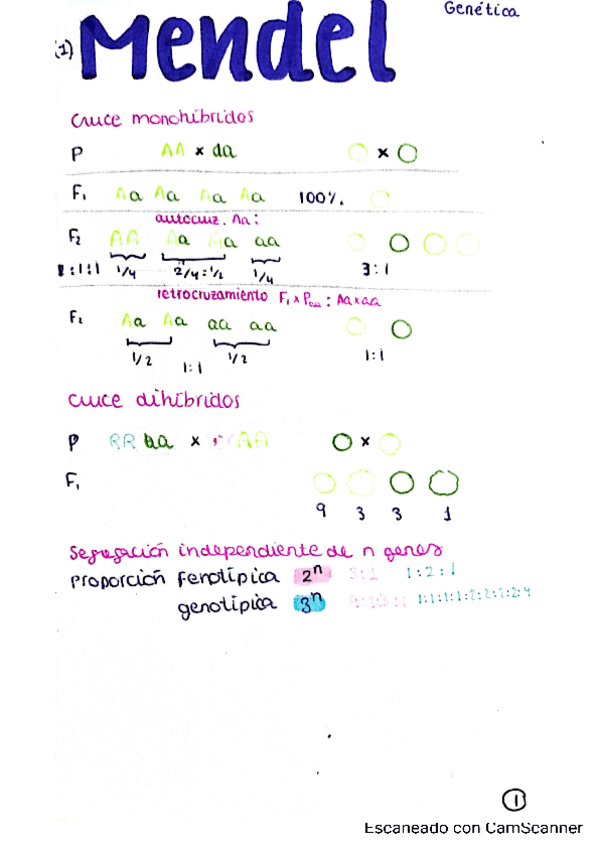 Genética
(1) Mendel
cruce monohíbridos
P AA x aa x
F₁ Aa Aa Aa Aa 100%.
autocruz. Aa:
F₂ AA Aa Aa aa
:1:1 1/4 2/4=1/2 1/4 3:1
retrocruzamiento F₁ x P : Aa x aa
F₂ Aa Aa aa aa
1/2 1:1 1/2 1:1
cruce dihíbridos
P RR aa x rr AA x
F₁
9 3 3 1
Segregación independiente de n genes
proporción fenotípica 2ⁿ 3:1 1:2:1
genotípica 3ⁿ 1:1:1:1:2:2:2:2:4
1
Escaneado con CamScanner